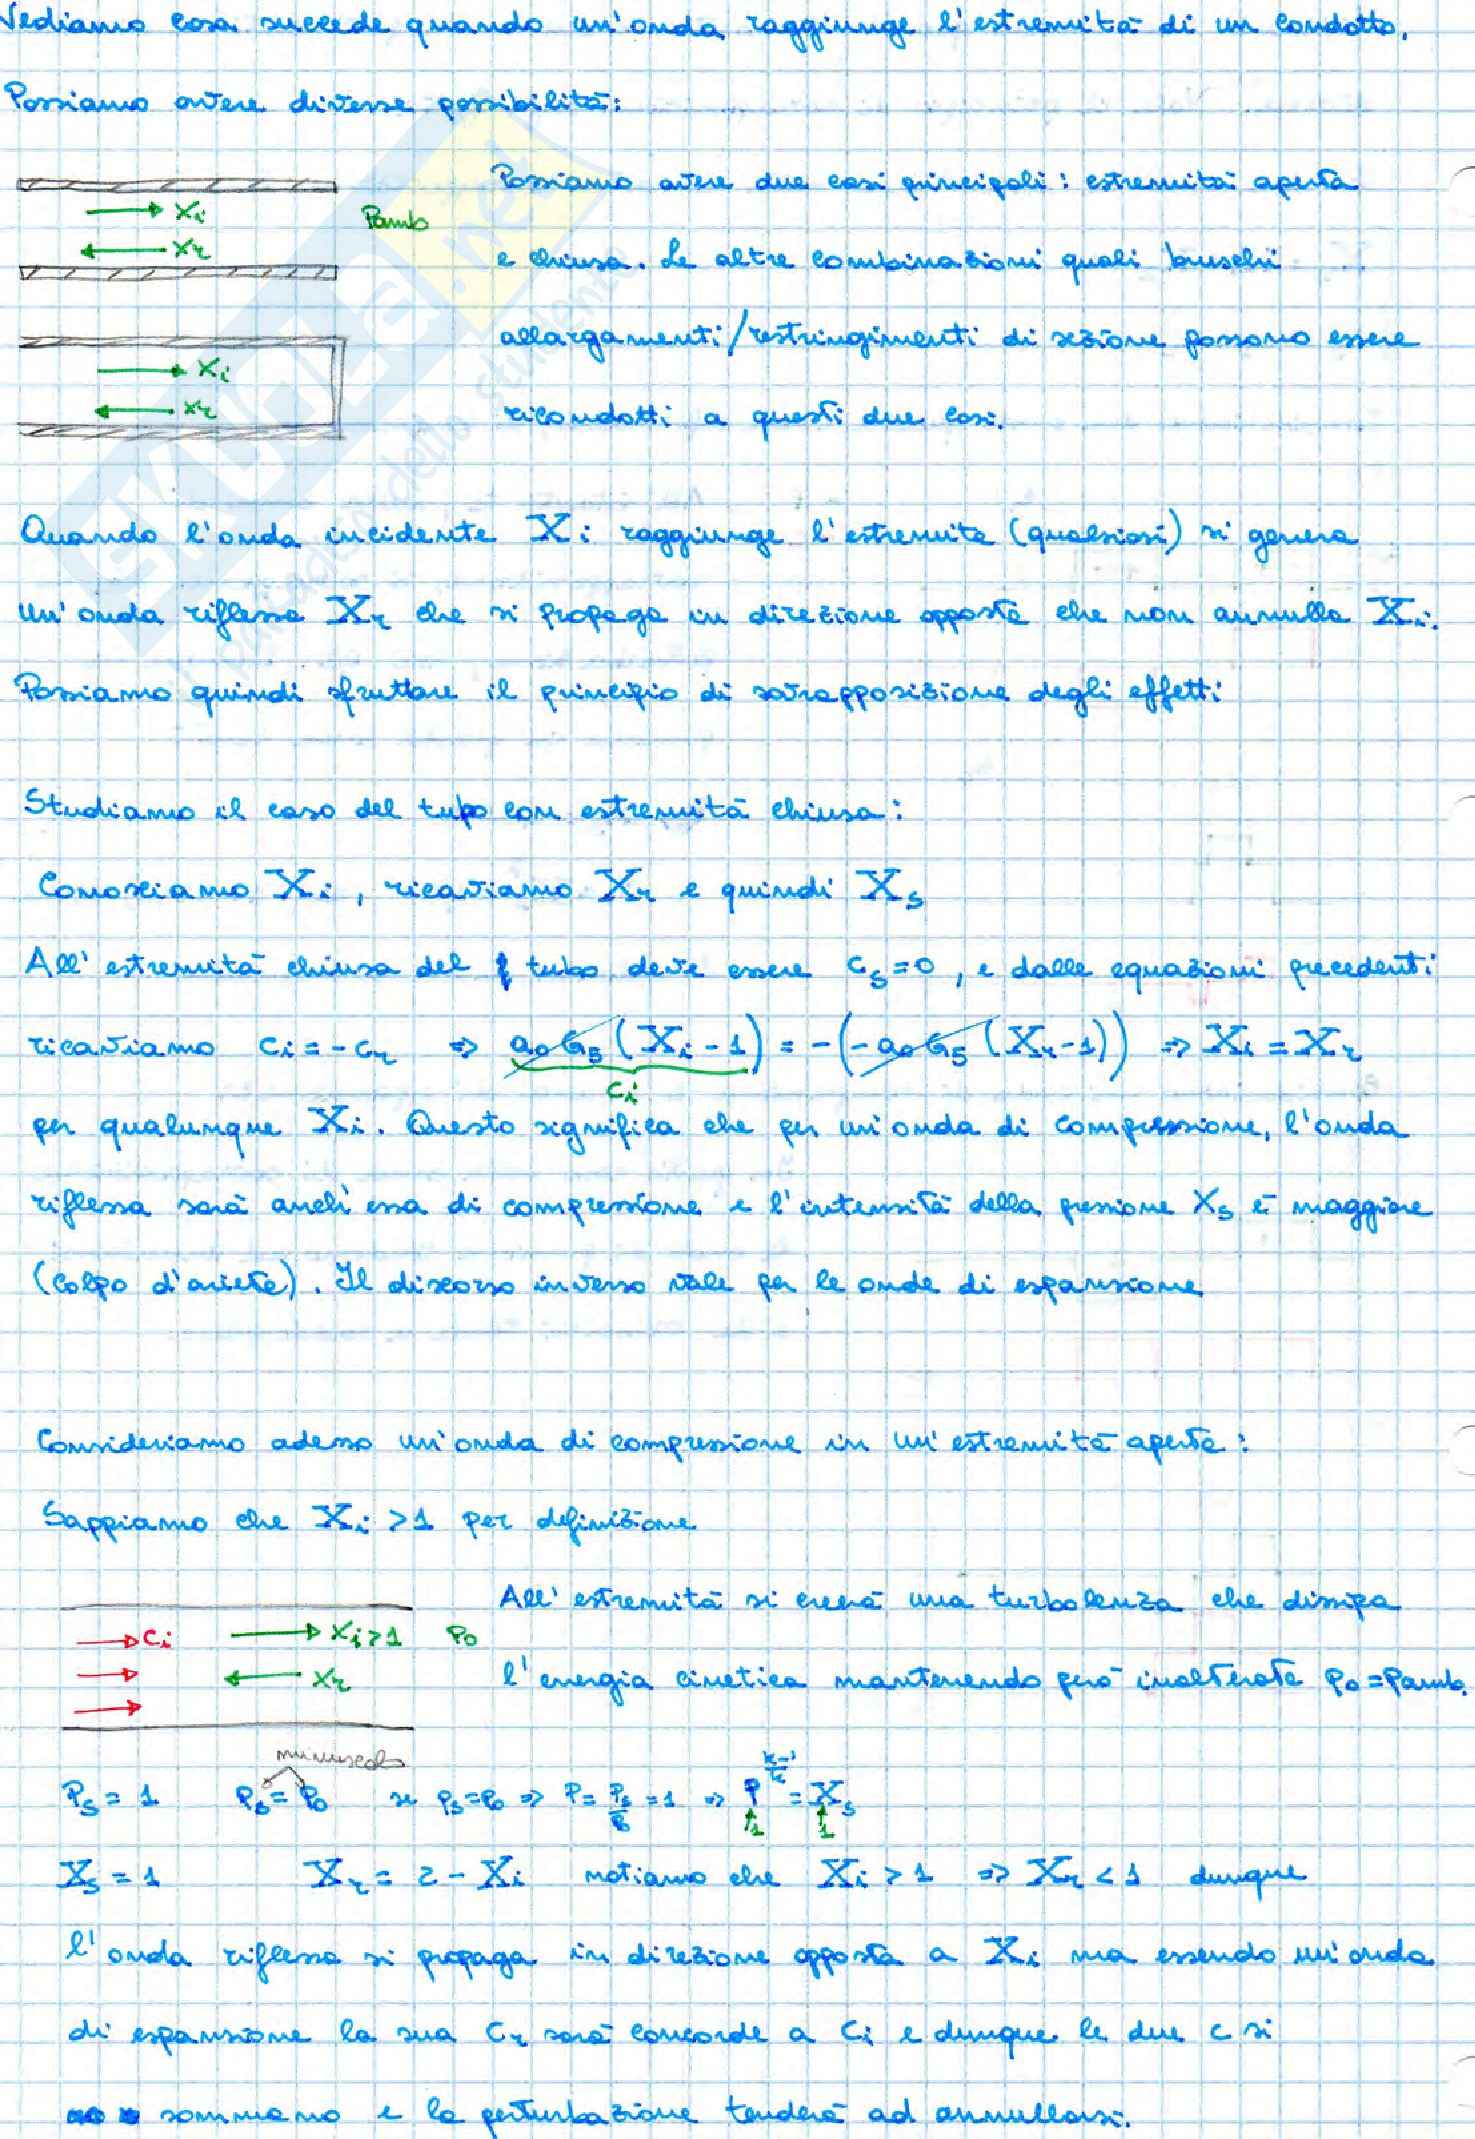 Vediamo cosa succede quando un'onda raggiunge l'estremità di un condotto.
Possiamo avere diverse possibilità:
Possiamo avere due casi principali: estremità aperta
Xi
Pamb
Xr
e chiusa. Le altre combinazioni quali bruschi
allargamenti/restringimenti di sezione possono essere
Xi
Xr
ricondotti a questi due casi.
Quando l'onda incidente Xi raggiunge l'estremità (qualsiasi) si genera
un'onda riflessa Xr che si propaga in direzione opposta che non annulla Xi.
Possiamo quindi sfruttare il principio di sovrapposizione degli effetti
Studiamo il caso del tubo con estremità chiusa:
Conosciamo Xi, ricaviamo Xr e quindi Xs
All'estremità chiusa del tubo deve essere cs=0, e dalle equazioni precedenti
ricaviamo ci=-cr => a0G5(Xi-1) = -(-a0G5(Xr-1)) => Xi=Xr
ci
per qualunque Xi. Questo significa che per un'onda di compressione, l'onda
riflessa sarà anch'essa di compressione e l'intensità della pressione Xs è maggiore
(colpo d'ariete). Il discorso inverso vale per le onde di espansione
Consideriamo adesso un'onda di compressione in un'estremità aperta:
Sappiamo che Xi>1 per definizione
All'estremità si creerà una turbolenza che dissipa
ci Xi>1 P0
Xr
l'energia cinetica mantenendo però inalterata p0=pamb.
minuscola
Ps=1 ps=p0 se ps=p0 => P=ps/p0=1 => P^(k-1/k)=Xs
1 1
Xs=1 Xr=2-Xi notiamo che Xi>1 => Xr<1 dunque
l'onda riflessa si propaga in direzione opposta a Xi ma essendo un'onda
di espansione la sua cr sarà concorde a ci e dunque le due c si
sommano e la perturbazione tenderà ad annullarsi.
SKUOLA.net
dello studente